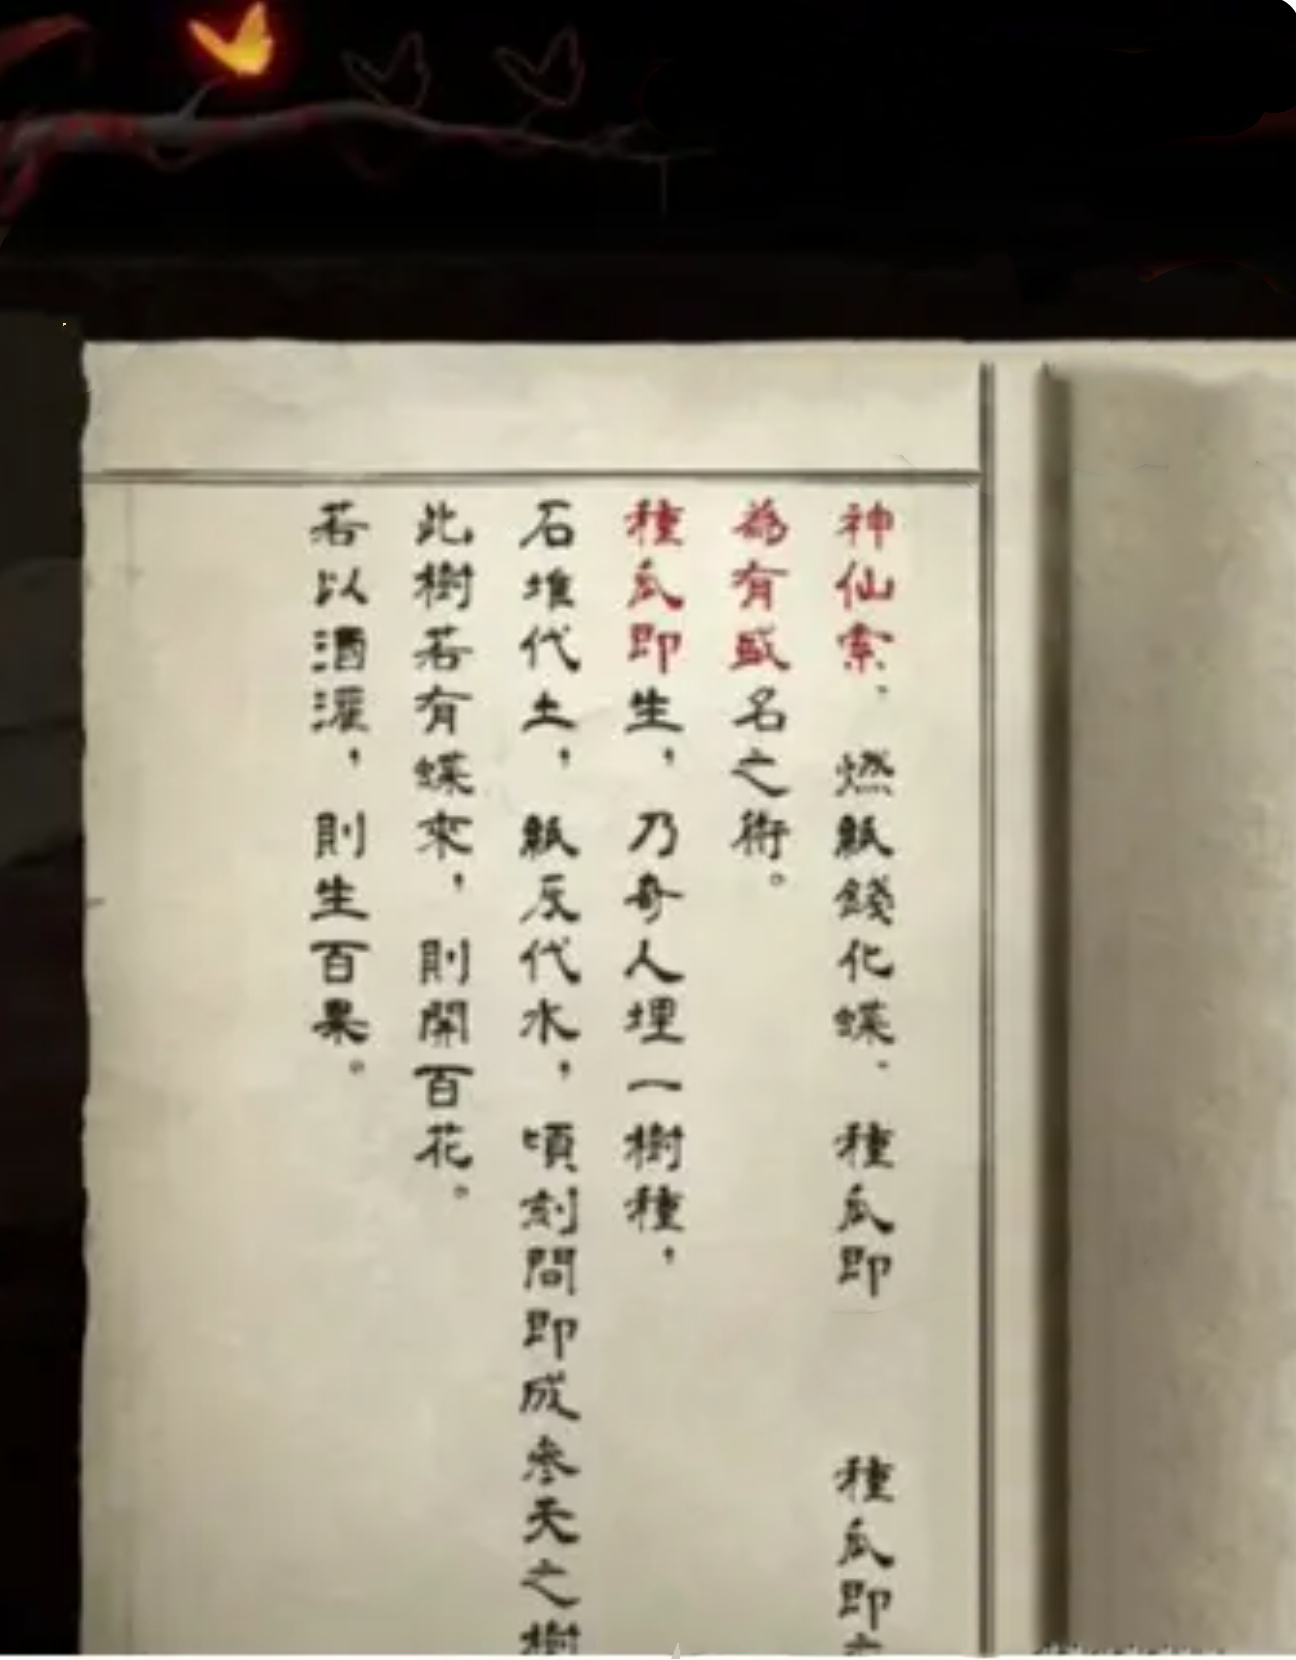 神仙索、燃紙錢化蝶、種瓜即 種瓜即
為有盛名之術。
種瓜即生，乃奇人埋一樹種，
石堆代土，紙灰代水，頃刻間即成參天之樹
此樹若有蝶來，則開百花。
若以酒灌，則生百果。